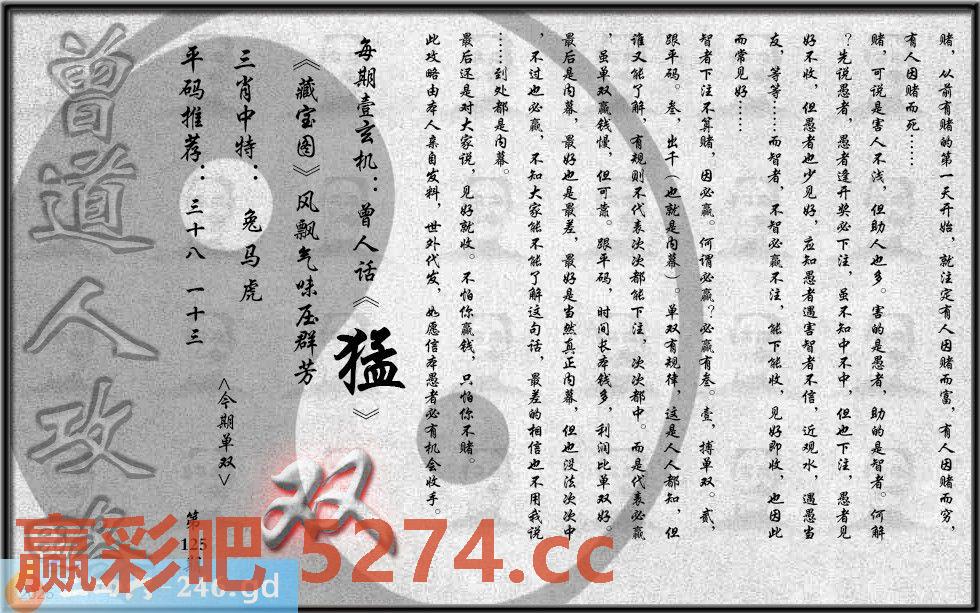 赌，从前有赌的第一天开始，就注定有人因赌而富，有人因赌而穷，
有人因赌而死……
赌，可说是害人不浅，但助人也多。害的是愚者，助的是智者。何解
？先说愚者，愚者逢开奖必下注，虽不知中不中，但也下注，愚者见
好不收，但愚者也少见好，应知愚者遇害智者不信，近观水，遇愚当
友，等等……而智者，不智必赢不注，能下能收，见好即收，也因此
而常见好……
智者下注不算赌，因必赢。何谓必赢？必赢有叁。壹，搏单双。贰，
跟平码。叁，出千（也就是内幕）。单双有规律，这是人人都知，但
谁又能了解，有规则不代表次次都能下注，次次都中。而是代表必赢
，虽单双赢钱慢，但可靠。跟平码，时间长本钱多，利润比单双好。
最后是内幕，最好也是最差，最好是当然真正内幕，但也没法次次中
，不过也必赢，不知大家能不能了解这句话，最差的相信也不用我说
……到处都是内幕。
最后还是对大家说，见好就收。不怕你赢钱，只怕你不赌。
此攻略由本人亲自发料，世外代发，如愿信本愚者必有机会收手。
每期壹玄机：曾人话《猛》
《藏宝图》风飘气味压群芳
三肖中特：兔马虎
平码推荐：三十八 一十三
<今期单双>
双
第125
曾道人攻
赢彩吧 5274.cc
-246.gd